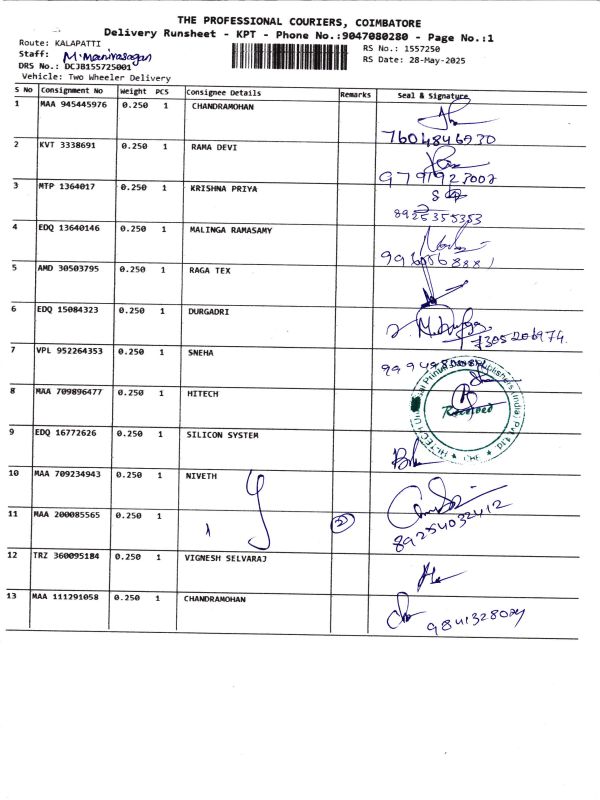 THE PROFESSIONAL COURIERS, COIMBATORE
Delivery Runsheet - KPT - Phone No.:9047080280 - Page No.:1
Route: KALAPATTI
RS No.: 1557250
Staff: M.Manivasagan
RS Date: 28-May-2025
DRS No.: DCJB155725001
Vehicle: Two Wheeler Delivery
S No Consignment No Weight PCS Consignee Details Remarks Seal & Signature
1 MAA 945445976 0.250 1 CHANDRAMOHAN
7604846930
2 KVT 3338691 0.250 1 RAMA DEVI
9791923002
3 MTP 1364017 0.250 1 KRISHNA PRIYA
8925355353
4 EDQ 13640146 0.250 1 MALINGA RAMASAMY
9960568881
5 AMD 30503795 0.250 1 RAGA TEX
6 EDQ 15084323 0.250 1 DURGADRI
7305206974.
7 VPL 952264353 0.250 1 SNEHA
8 MAA 709896477 0.250 1 HITECH
Received
9 EDQ 16772626 0.250 1 SILICON SYSTEM
10 MAA 709234943 0.250 1 NIVETH
11 MAA 200085565 0.250 1
89254032412
12 TRZ 360095184 0.250 1 VIGNESH SELVARAJ
13 MAA 111291058 0.250 1 CHANDRAMOHAN